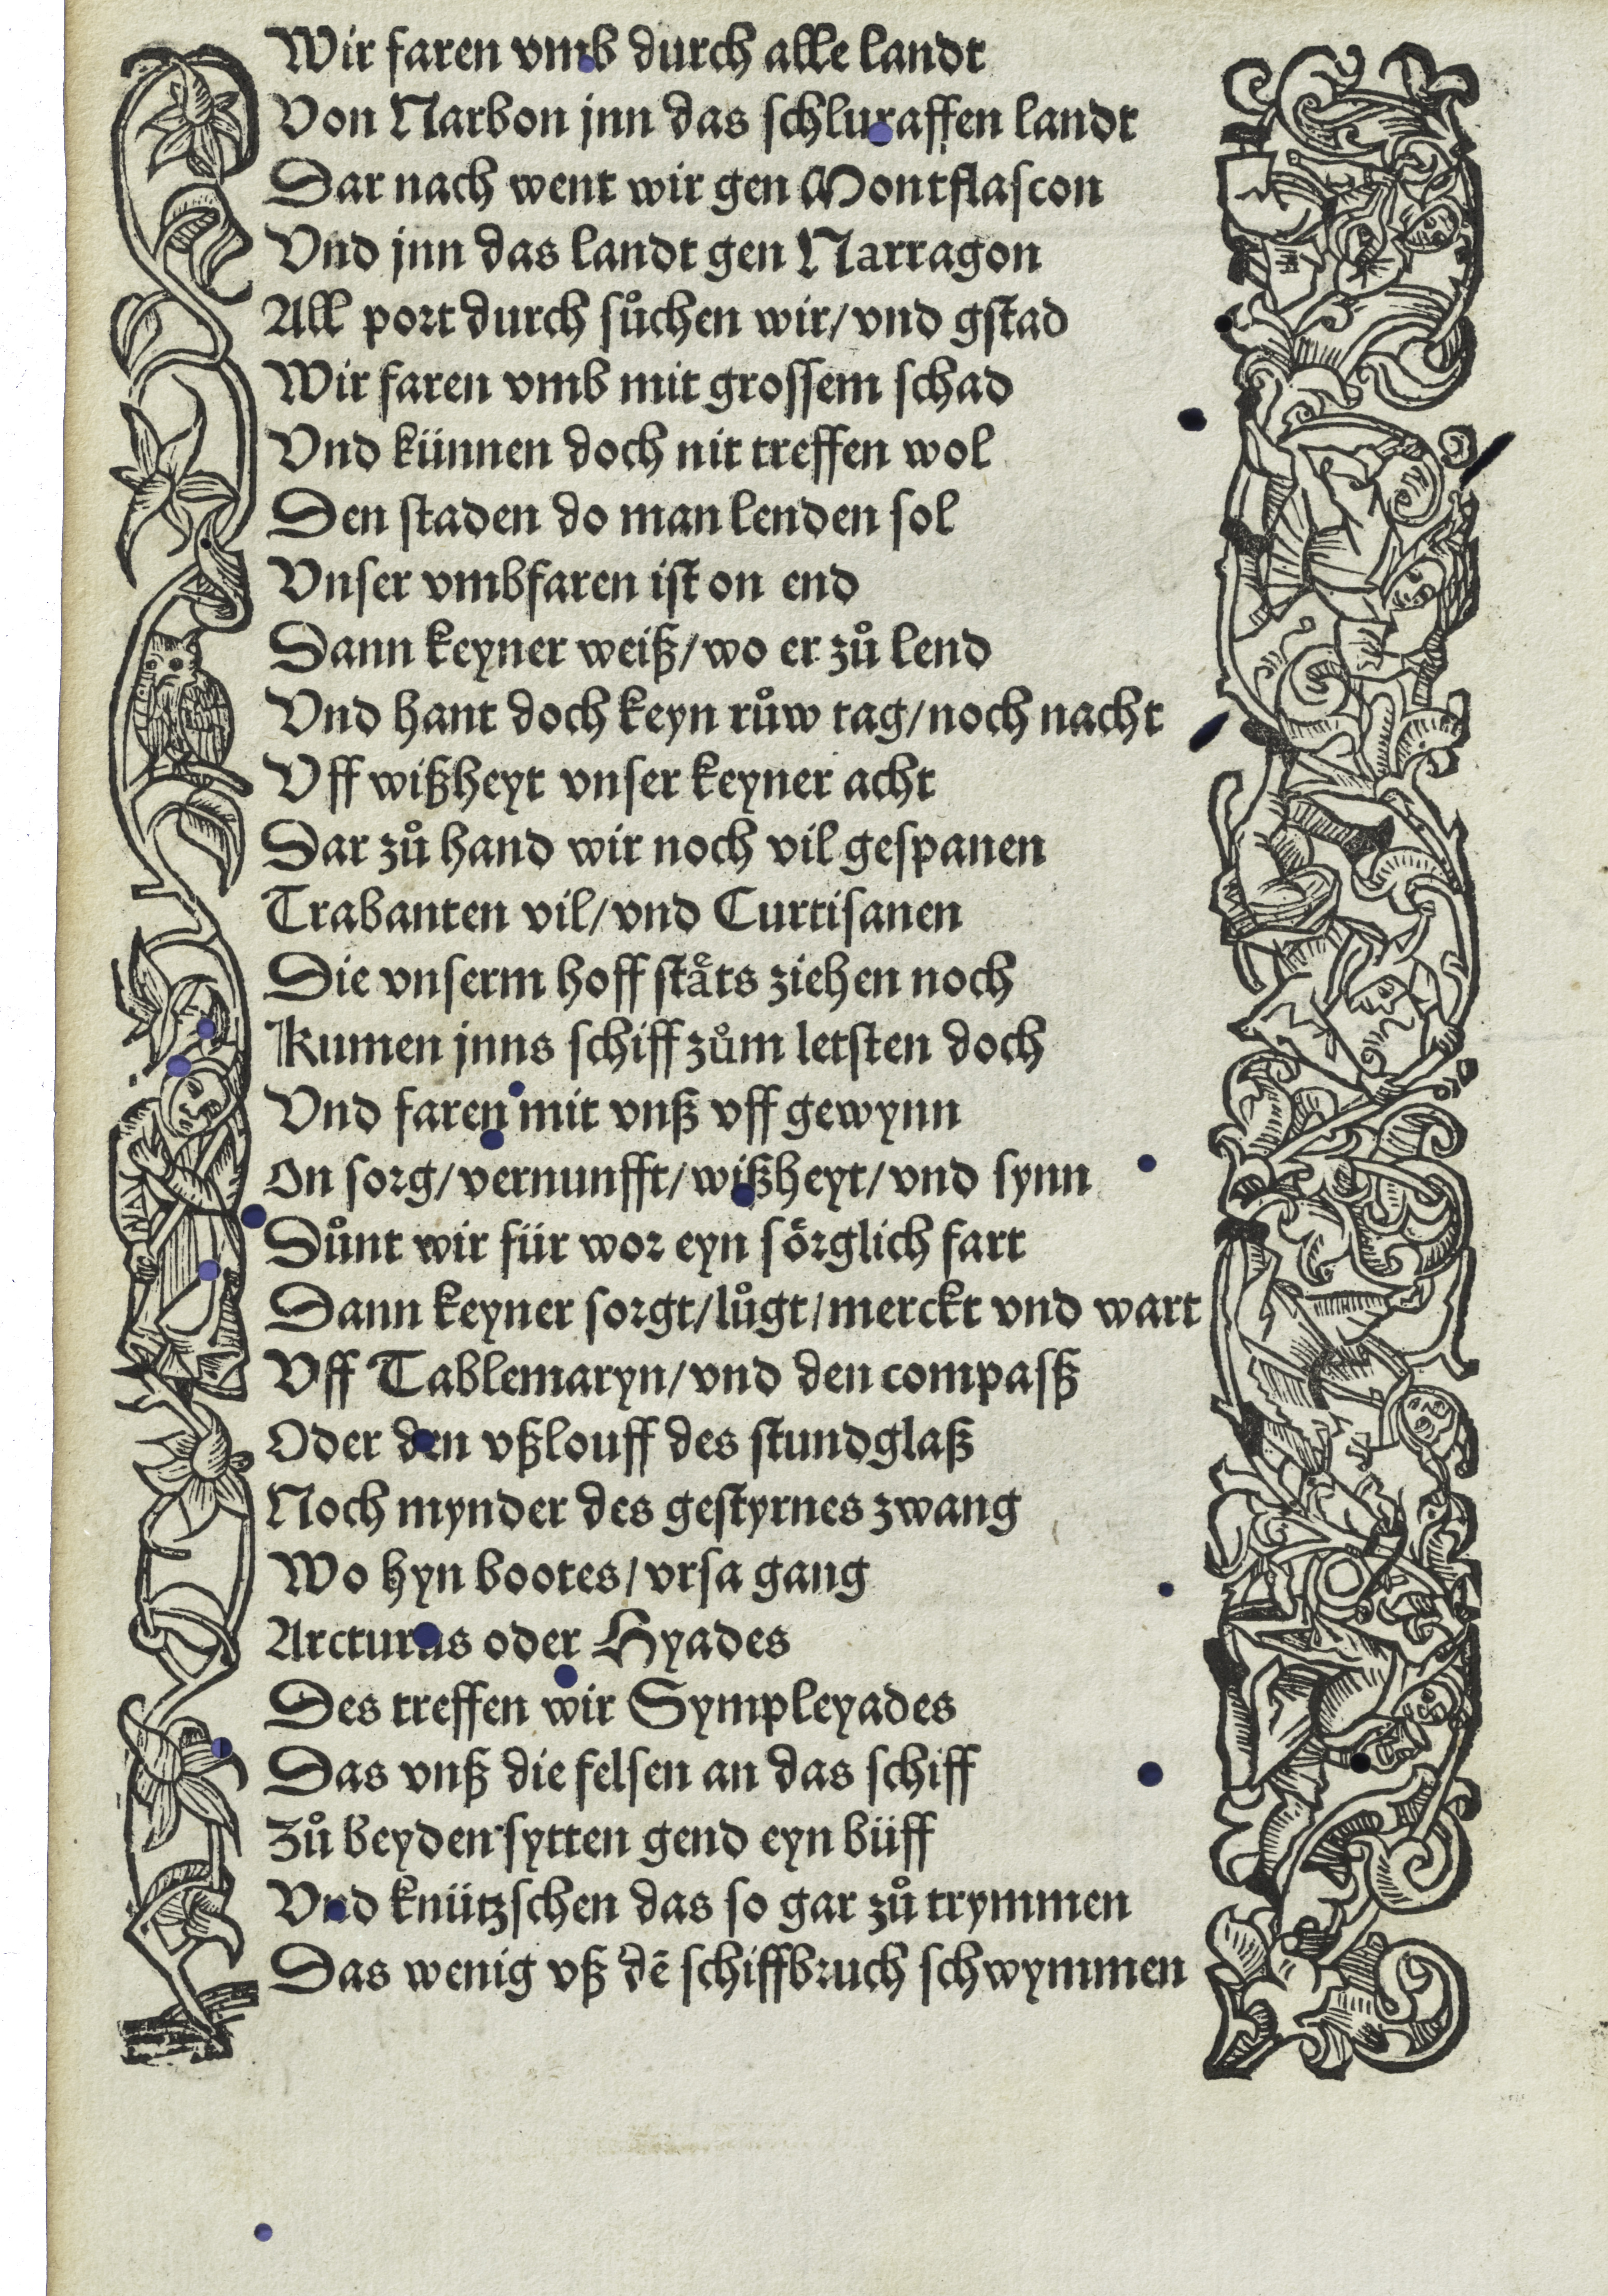 Wir faren vmb durch alle landt
Von Narbon jnn das schluraffen landt
Dar nach went wir gen Montflascon
Vnd jnn das landt gen Narragon
All port durch sůchen wir/ vnd gstad
Wir faren vmb mit grossem schad
Vnd künnen doch nit treffen wol
Den staden do man lenden sol
Vnser vmbfaren ist on end
Dann keyner weiß/ wo er zů lend
Vnd hant doch keyn růw tag/ noch nacht
Vff wißheyt vnser keyner acht
Dar zů hand wir noch vil gespanen
Trabanten vil/ vnd Curtisanen
Die vnserm hoff stäts ziehen noch
Kumen jnns schiff zům letsten doch
Vnd faren mit vnß vff gewynn
On sorg/ vernunfft/ wißheyt/ vnd synn
Důnt wir für wor eyn sörglich fart
Dann keyner sorgt/ lůgt/ merckt vnd wart
Vff Tablemaryn/ vnd den compasß
Oder den vßlouff des stundglaß
Noch mynder des gestyrnes zwang
Wo hyn bootes/ vrsa gang
Arcturus oder Hyades
Des treffen wir Sympleyades
Das vnß die felsen an das schiff
Zů beyden sytten gend eyn büff
Vnd knützschen das so gar zů trymmen
Das wenig vß dē schiffbruch schwymmen